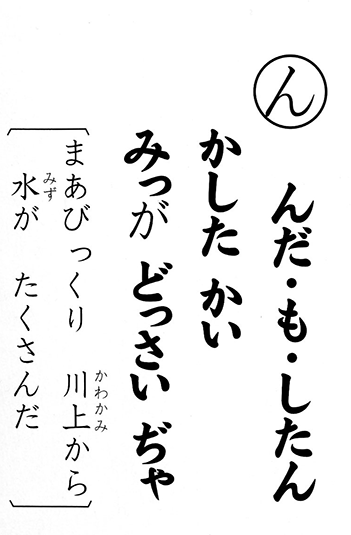 ん
んだ・も・したん
かした かい
みっが どっさい ぢゃ
まあびっくり 川上から
かわかみ
水が たくさんだ
みず